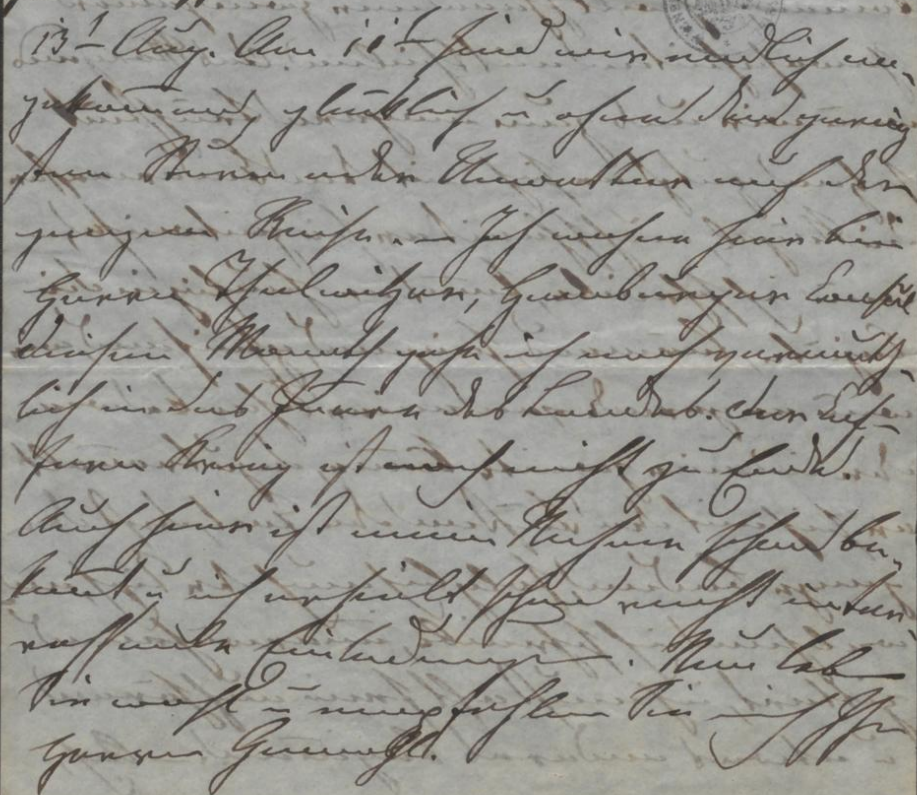 13t Aug. Am 11t sind wir endlich an-
gekommen glücklich u ohne den gering
sten Sturm oder Unwetter auf der
ganzen Reise. – Ich wohne hier bei
Herrn Thalwitzer, Hamburger Consul
diesen Monath gehe ich noch
lich in das Innere des Landes. Der
Krieg ist noch nicht zu Ende.
Auch hier ist mein Nahme schon be-
kannt u ich erhielt schon recht inter
essante Einladungen. Nun leb
Sie wohl u empfehlen Sie mich Ihr
Herrn Gemahl.